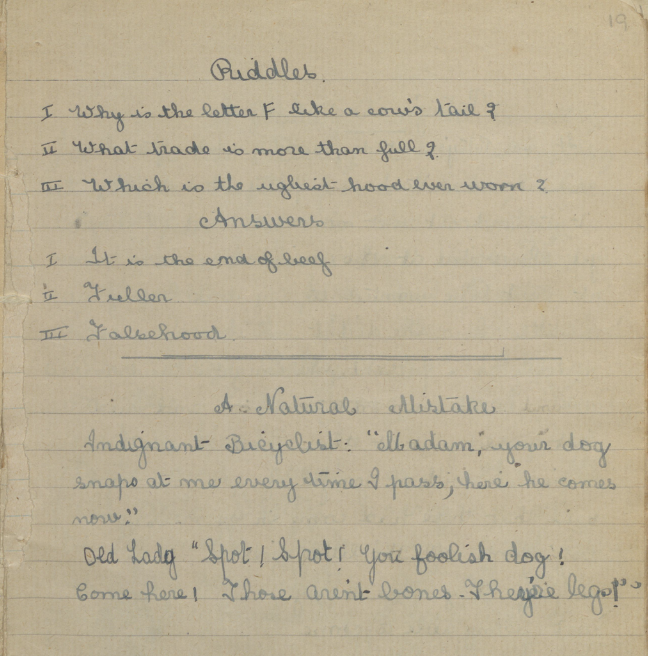 19
Riddles.
I Why is the letter F like a cow's tail?
II What trade is more than full?
III Which is the ugliest hood ever worn?
Answers
I It is the end of beef
II Fuller
III Falsehood.
A Natural Mistake
Indignant Bicyclist: "Madam, your dog
snaps at me every time I pass, here he comes
now."
Old Lady "Spot! Spot! You foolish dog!
Come here! Those aren't bones - They're legs!"